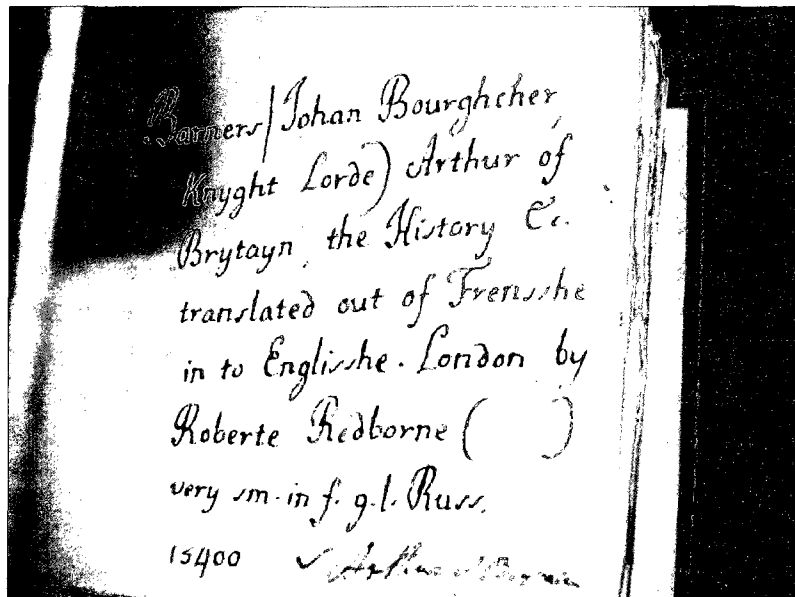 Barners / Johan Bourghcher,
Knyght Lorde) Arthur of
Brytayn, the History &c.
translated out of Frensshe
in to Englisshe. London by
Roberte Redborne ( )
very sm. in f. g. l. Russ.
15400 ✓ Arthur of